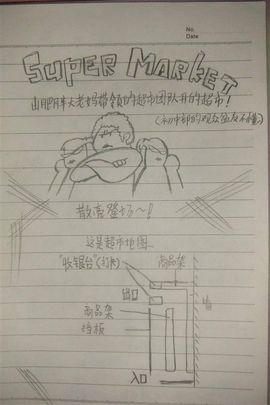 No.
Date
SUPER MARKET
由肥胖大老妈带领的超市团队开的超市！
(初中部的观众盆友不懂)
散亮登场～！
这是超市地图
"收银台"(打卡)
商品架
出口
商品架
挡板
入口
墙